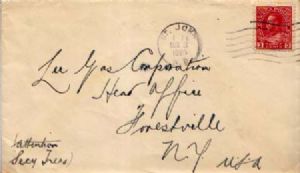 ST. JOHN
Lee Gas Corporation
Head Office
Forestville
N.Y. USA
(Attention
Secy Treas)